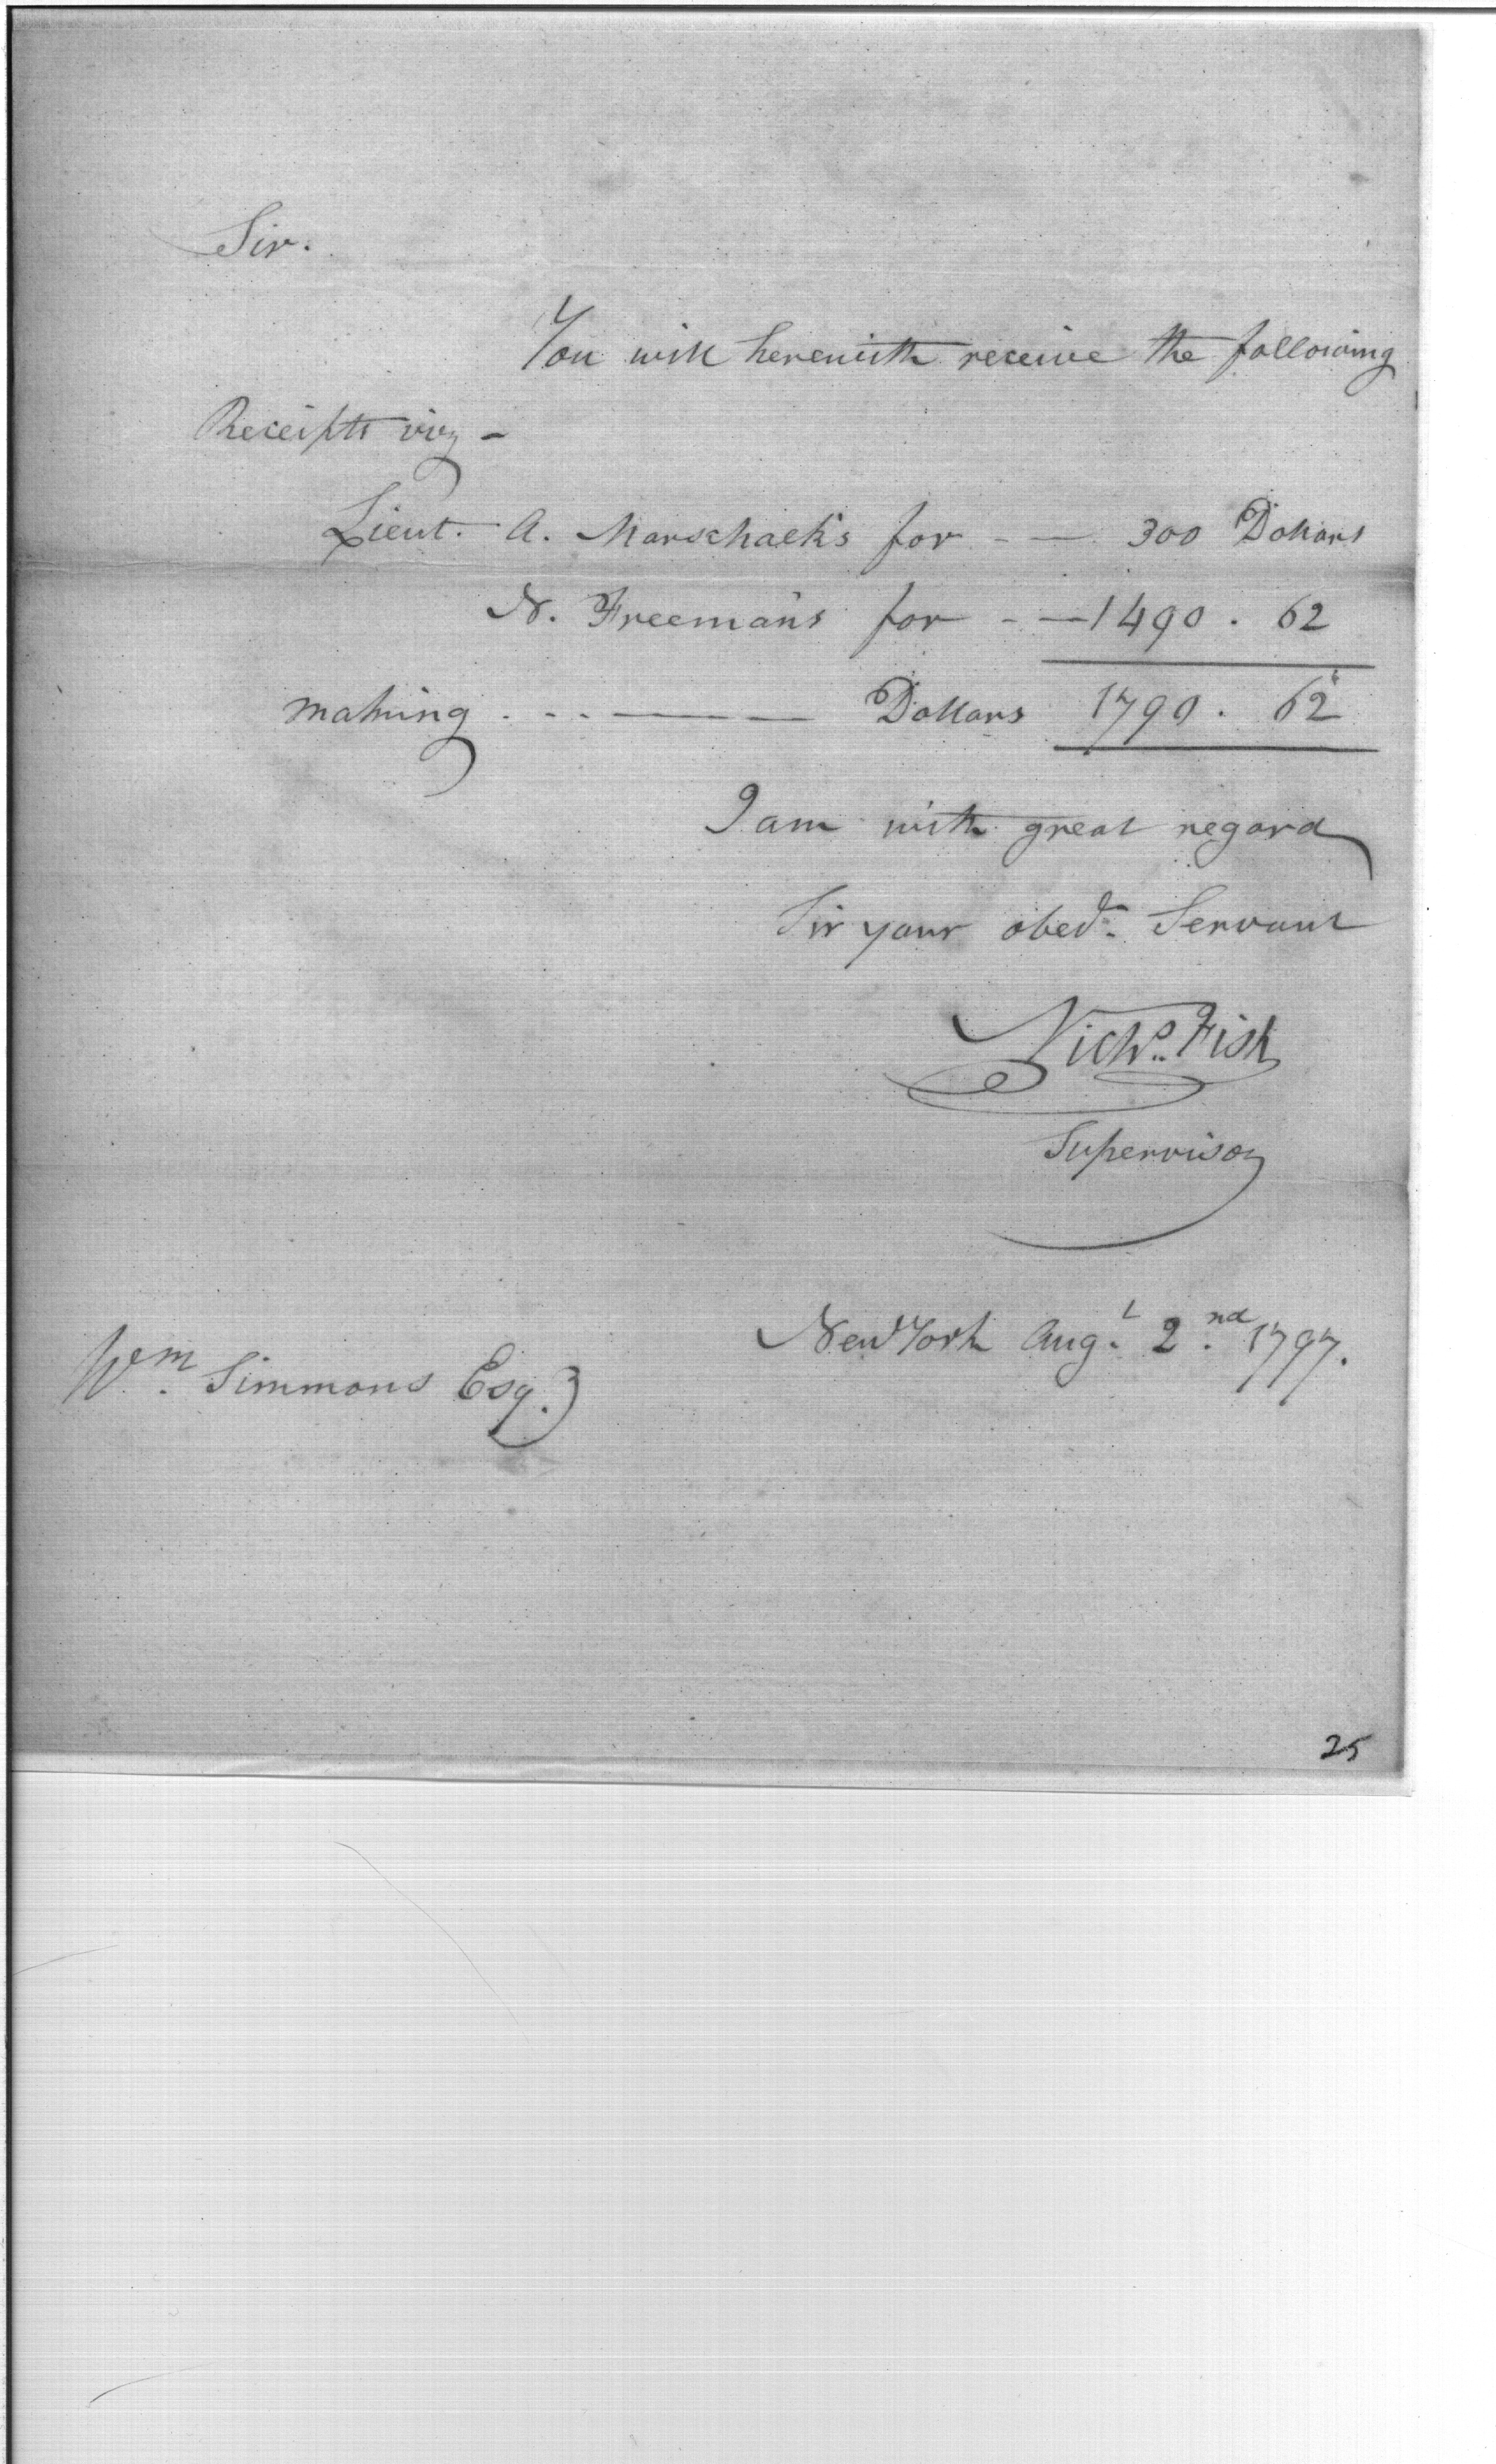 Sir.
You will herewith receive the following
Receipts viz -
Lieut. A. Marschalk's for - — 300 Dollars
N. Freeman's for - — 1490 . 62
making . - - ——— Dollars 1790 . 62
I am with great regard
Sir your obedt. Servant
Nichs. Fish
Supervisor
New York Augt. 2nd. 1797.
Wm. Simmons Esq.
25